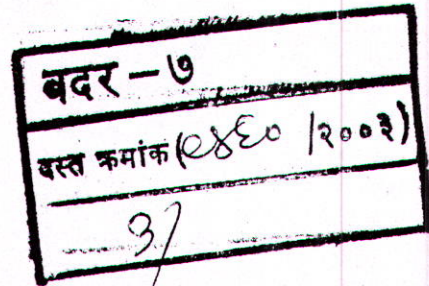 बदर - ७
दस्त क्रमांक (९४६० /२००३)
३/